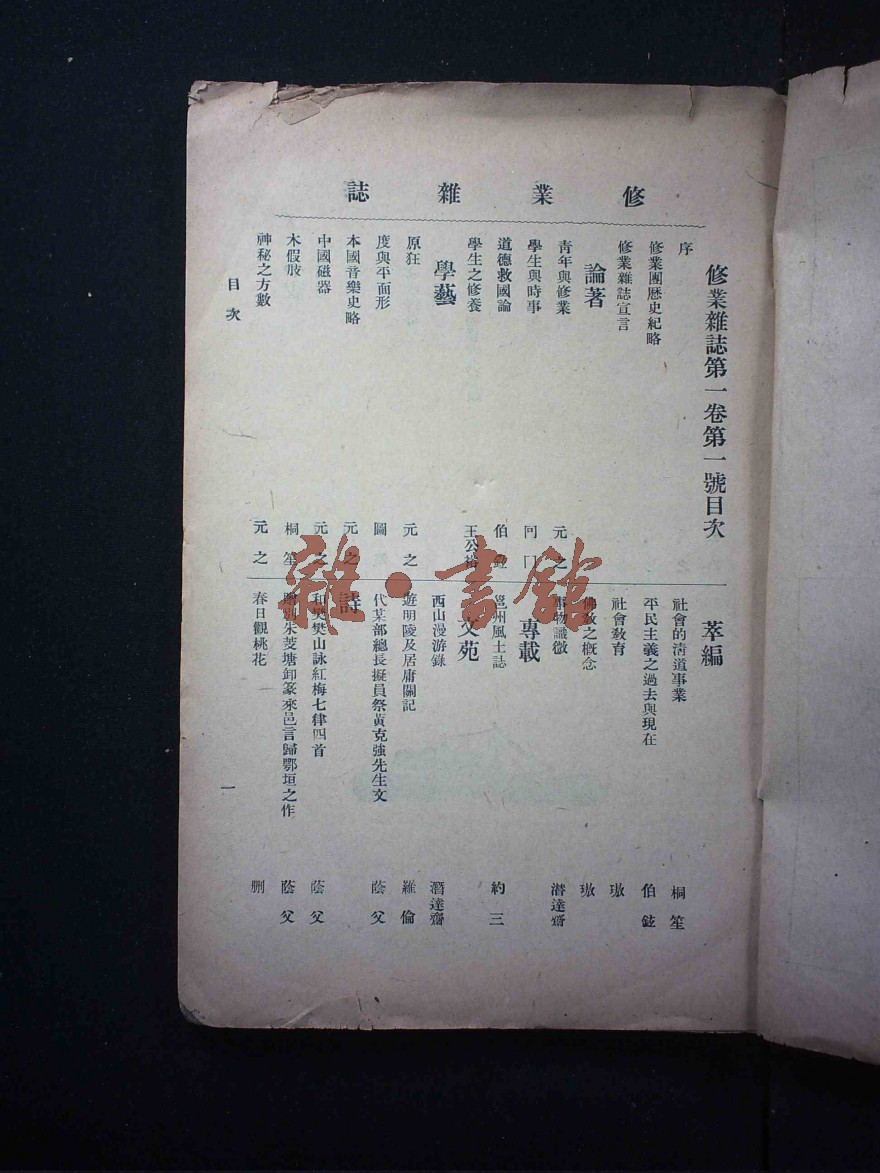 修業雜誌
修業雜誌第一卷第一號目次
序
修業團歷史紀略
修業雜誌宣言
論著
青年與修業 元之
學生與時事
道德救國論 伯
學生之修養 王公裕
學藝
原狂 元之
度與平面形 圖
本國音樂史略 元之
中國磁器 元之
木假肢 桐笙
神秘之方數 元之
萃編
社會的清道事業 桐笙
平民主義之過去與現在 伯鉉
社會敎育 璈
佛敎之槪念 璈
物識微 潜達齋
專載
邕州風土誌 約三
文苑
西山漫游錄 潛達齋
遊明陵及居庸關記 羅倫
代某部總長擬員祭黃克強先生文 蔭父
詩
和樊樊山詠紅梅七律四首 蔭父
別朱菱塘卸篆來邑言歸鄂垣之作 蔭父
春日觀桃花 刪
目次
一
雜·書館